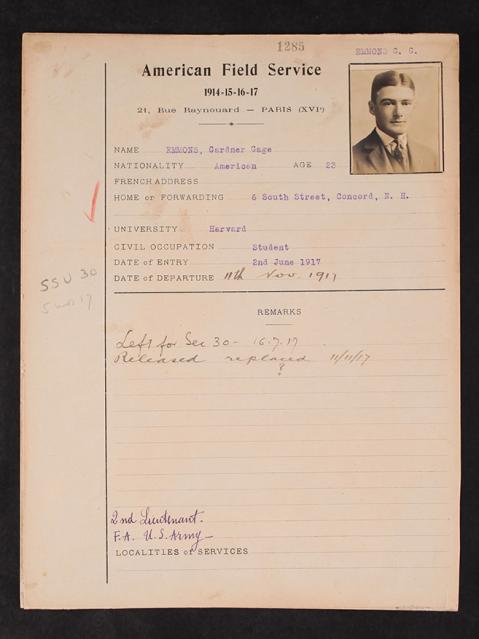 1285
EMMONS G. G.
American Field Service
1914-15-16-17
21, Rue Raynouard — PARIS (XVIᵉ)
NAME EMMONS, Gardner Gage
NATIONALITY American AGE 23
FRENCH ADDRESS
HOME or FORWARDING 6 South Street, Concord, N. H.
UNIVERSITY Harvard
CIVIL OCCUPATION Student
DATE of ENTRY 2nd June 1917
DATE of DEPARTURE 11th Nov. 1917
SSU 30
17
REMARKS
Left for Sec 30 - 16.7.17
Released replaced 11/11/17
?
2nd Lieutenant.
F.A. U.S. Army —
LOCALITIES of SERVICES